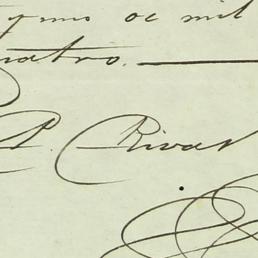 de mil
uatro.
P. Rivas